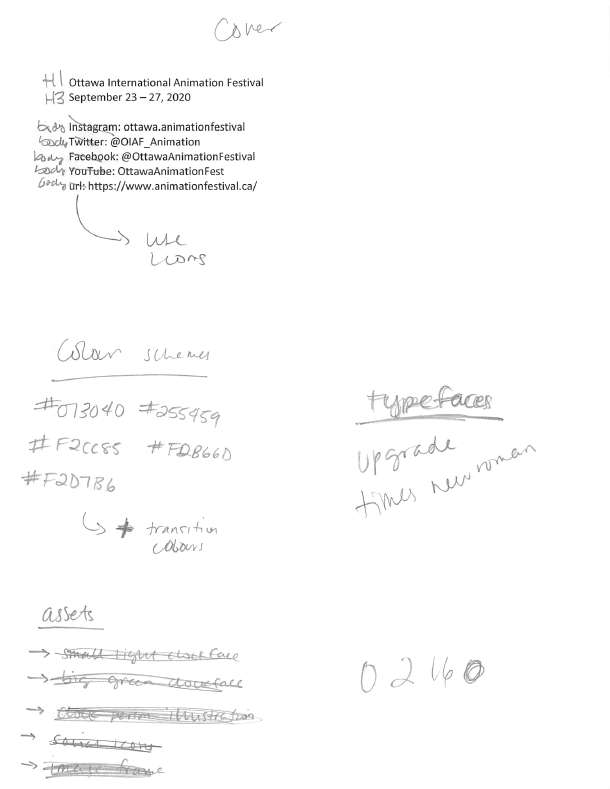 Cover
H1 Ottawa International Animation Festival
H3 September 23 – 27, 2020
body Instagram: ottawa.animationfestival
body Twitter: @OIAF_Animation
body Facebook: @OttawaAnimationFestival
body YouTube: OttawaAnimationFest
body url: https://www.animationfestival.ca/
use
icons
Colour schemes
#073040 #255459
#F2CC85 #FDB66D
#F2D7B6
+ transition
colours
typefaces
upgrade
times new roman
assets
small light clockface
big green clockface
clock person illustration
social icons
image frame
0 2 16 0